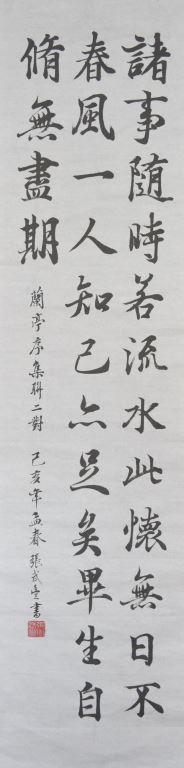 諸事隨時若流水此懷無日不
春風一人知己亦足矣畢生自
脩無盡期
蘭亭序集聯二對 己亥年孟春張武㐰書